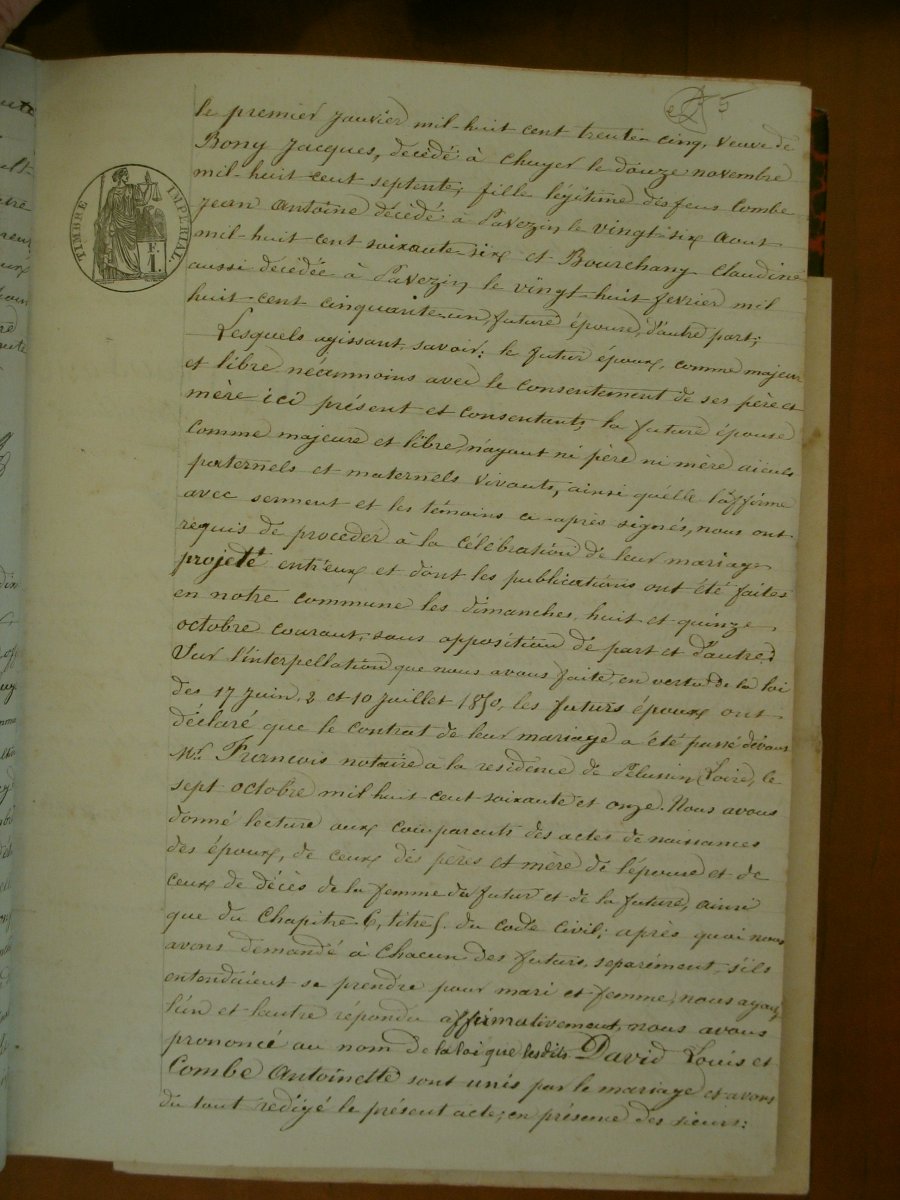 5
le premier Janvier mil-huit cent trente-cinq, veuve de
Bony Jacques, décédé à Chuyer le douze novembre
mil-huit cent septente; fille légitime des feus Combe
Jean Antoine décédé à Pavezin le vingt-six Aout
mil-huit cent soixante-six et Bourchany Claudine
aussi décédée à Pavezin le vingt-huit fevrier mil
huit-cent cinquante-un, future épouse, d'autre part;
Lesquels agissant, savoir: le futur époux, comme majeur
et libre néanmoins avec le consentement de ses père et
mère ici présent et consentants, la future épouse
comme majeure et libre, n'ayant ni père ni mère aieuls
paternels et maternels vivants, ainsi qu'elle l'affirme
avec serment et les témoins ci-après signés, nous ont
requis de procéder à la célébration de leur mariage
projeté entr'eux et dont les publications ont été faites
en notre commune les dimanches, huit et quinze
octobre courant, sans opposition de part et d'autre.
Sur l'interpellation que nous avons faite, en vertu de la loi
des 17 Juin, 2 et 10 Juillet 1850, les futurs époux ont
déclaré que le contrat de leur mariage a été passé devant
Me Francois notaire à la residence de Pelussin (Loire), le
sept octobre mil huit cent soixante et onze. Nous avons
donné lecture aux comparents des actes de naissances
des époux, de ceux des pères et mère de l'épouse et de
ceux de décès de la femme du futur et de la future, ainsi
que du Chapitre 6, titre 5. du code Civil; après quoi nous
avons demandé à chacun des futurs, separément, s'ils
entendaient se prendre pour mari et femme, nous ayant
l'un et l'autre répondu affirmativement, nous avons
prononcé au nom de la loi que lesdits David Louis et
Combe Antoinette sont unis par le mariage et avons
du tout redigé le présent acte, en présence des sieurs:
TIMBRE IMPÉRIAL.
E.
F.
1.